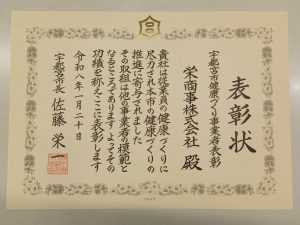 表彰状
宇都宮市健康づくり事業者表彰
栄商事株式会社 殿
貴社は従業員の健康づくりに
尽力され本市の健康づくりの
推進に寄与されました
その取組は他の事業者の模範と
なるところでありますよってその
功績を称えここに表彰します
令和八年一月二十日
宇都宮市長 佐藤栄一